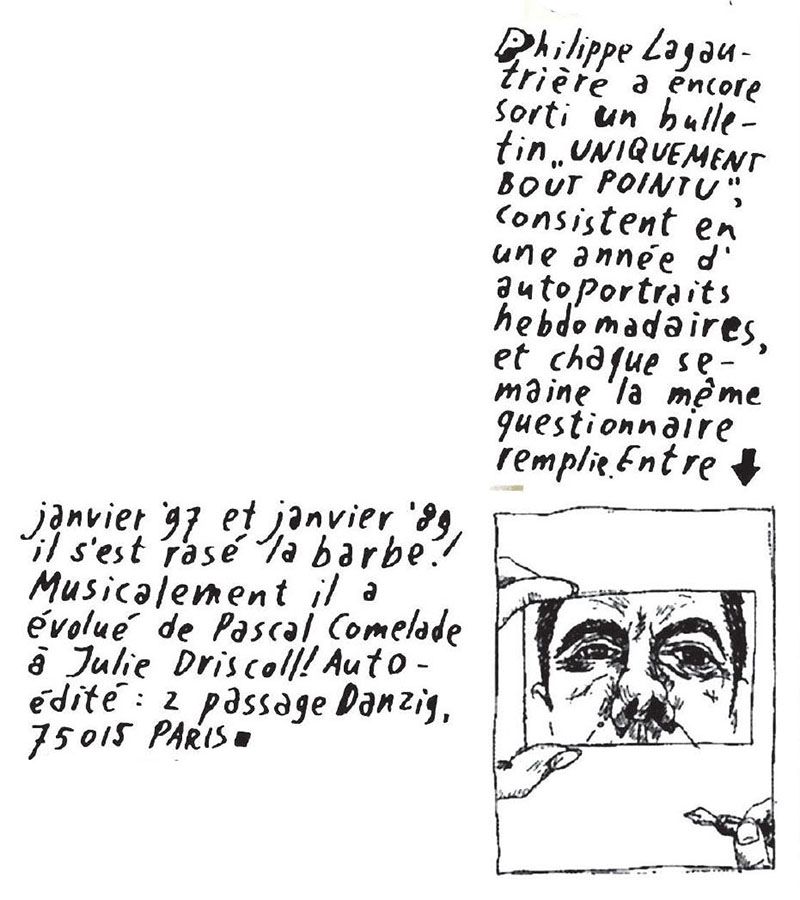 Philippe Lagau-
trière a encore
sorti un bulle-
tin „UNIQUEMENT
BOUT POINTU“,
consistent en
une année d'
autoportraits
hebdomadaires,
et chaque se-
maine la même
questionnaire
remplie. Entre
janvier '97 et janvier '89
il s'est rasé la barbe!
Musicalement il a
évolué de Pascal Comelade
à Julie Driscoll! Auto-
édité: 2 passage Danzig,
75015 PARIS